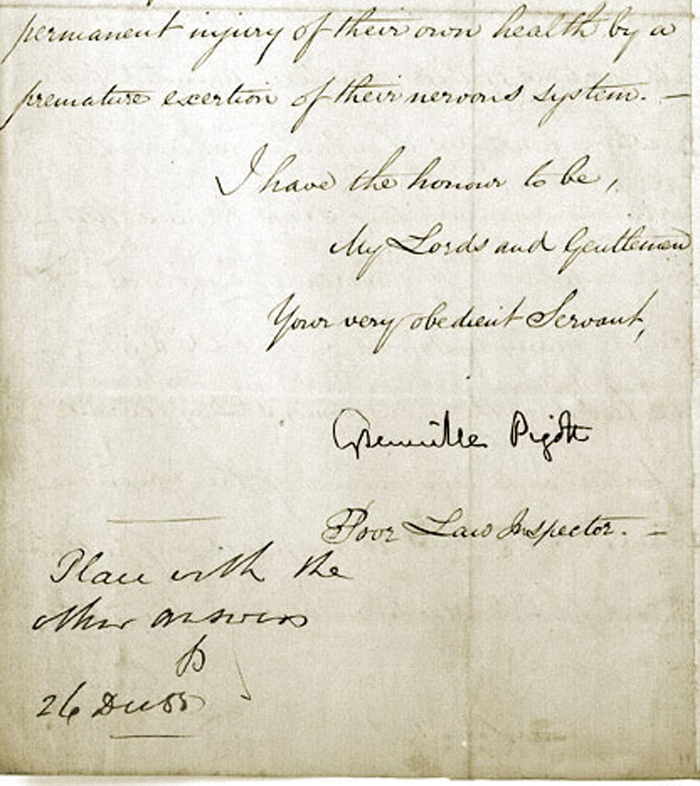 permanent injury of their own health by a
premature exertion of their nervous system. —
I have the honour to be,
My Lords and Gentlemen
Your very obedient Servant,
Grenville Pigott
Poor Law Inspector. —
Place with the
other answers
26 Dec 55